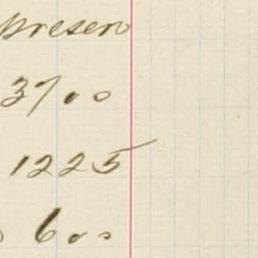 presen
37.00
1225
600